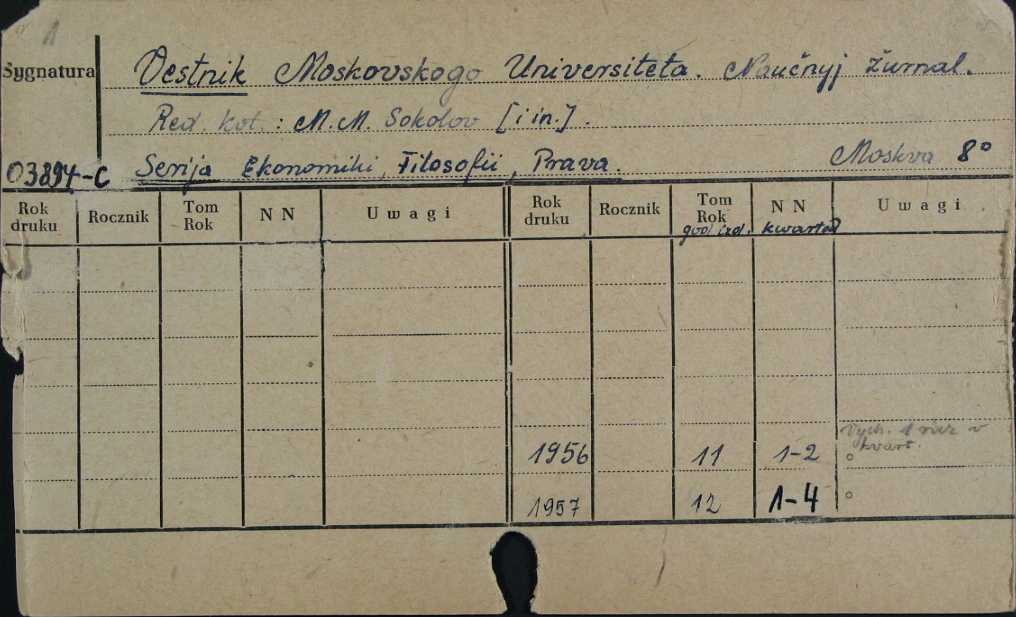 1
Sygnatura Vestnik Moskovskogo Universiteta. Naučnyj žurnal.
Red. kol.: M.M. Sokolov [i in.].
03894-C Serija Ekonomiki, Filosofii, Prava. Moskva 8°
Rok druku Rocznik Tom Rok NN Uwagi Rok druku Rocznik Tom Rok NN Uwagi
god izd. kwartał
Vych. 1 raz v
kvart.
1956 11 1-2 °
1957 12 1-4 °